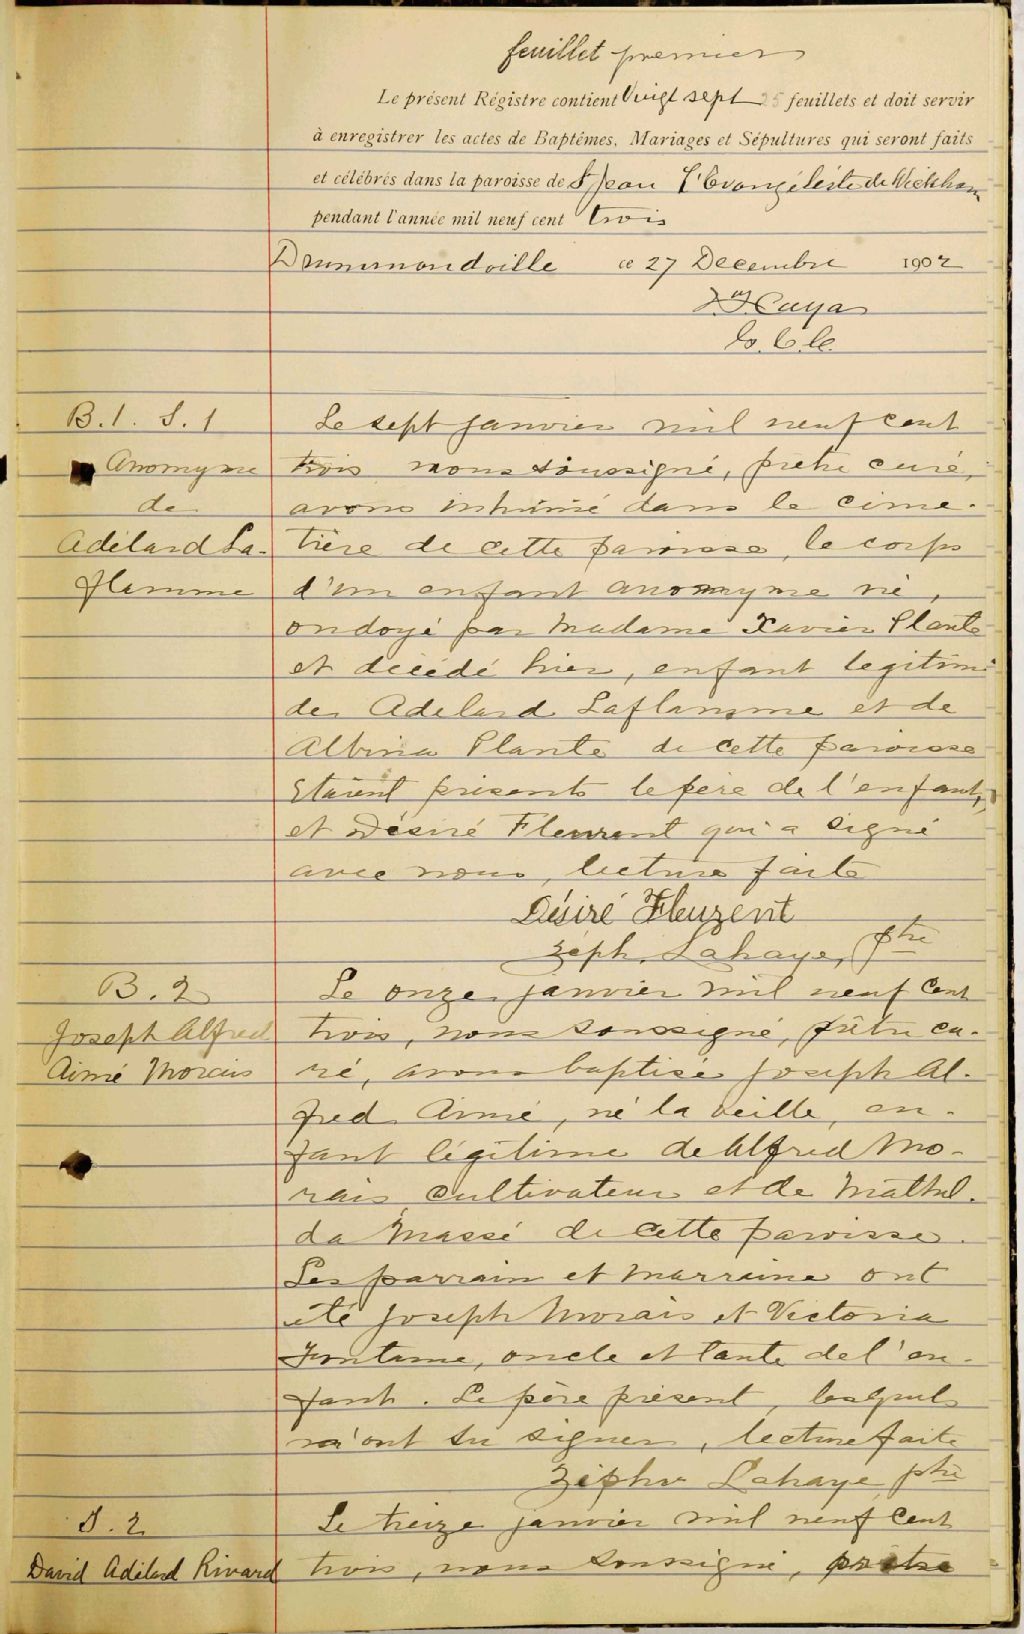 feuillet premier
Le présent Régistre contient Vingt sept 25 feuillets et doit servir
à enregistrer les actes de Baptêmes, Mariages et Sépultures qui seront faits
et célébrés dans la paroisse de St Jean l'Evangéliste de Wickham
pendant l'année mil neuf cent trois
Drummondville ce 27 Decembre 1902
Caya
B.1. S.1
Anonyme
de
Adélard La-
flamme
Le sept janvier mil neuf cent
trois nous soussigné, prêtre curé,
avons inhumé dans le cime-
tière de cette paroisse, le corps
d'un enfant anonyme né,
ondoyé par Madame Xavier Plante
et décédé hier, enfant legitime
de Adelard Laflamme et de
Albina Plante de cette paroisse
Etaient présents le père de l'enfant,
et Désiré Fleurent qui a signé
avec nous, lecture faite
Désiré Fleurent
Zéph. Lahaye, ptre
B. 2
Joseph Alfred
Aimé Morais
Le onze janvier mil neuf cent
trois, nous soussigné, prêtre cu-
ré, avons baptisé Joseph Al-
fred Aimé, né la veille, en-
fant légitime de Alfred Mo-
rais cultivateur et de Mathil-
da Massé de cette paroisse.
Les parrain et marraine ont
été Joseph Morais et Victoria
Fontaine, oncle et tante de l'en-
fant. Le père présent, lesquels
n'ont su signer, lecture faite
Zéphr Lahaye ptre
S. 2
David Adélard Rivard
Le treize janvier mil neuf cent
trois, nous soussigné, prêtre